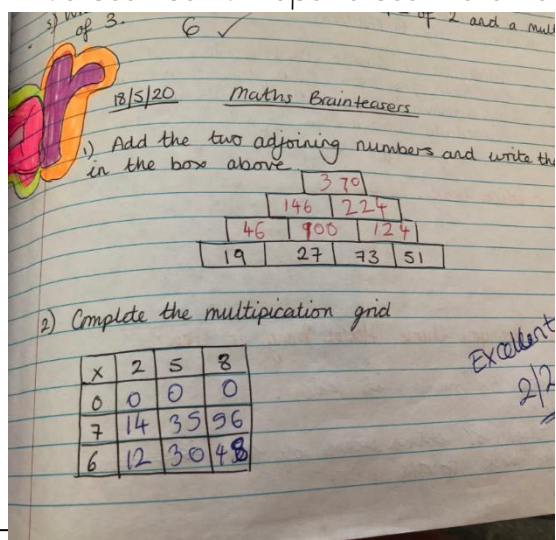 of 3. 6 ✓
of 2 and a mul
18/5/20 Maths Brainteasers
1) Add the two adjoining numbers and write the
in the box above
370
146 224
46 100 124
19 27 73 51
2) Complete the multipication grid
x 2 5 8
0 0 0 0
7 14 35 56
6 12 30 48
Excellent
2/2